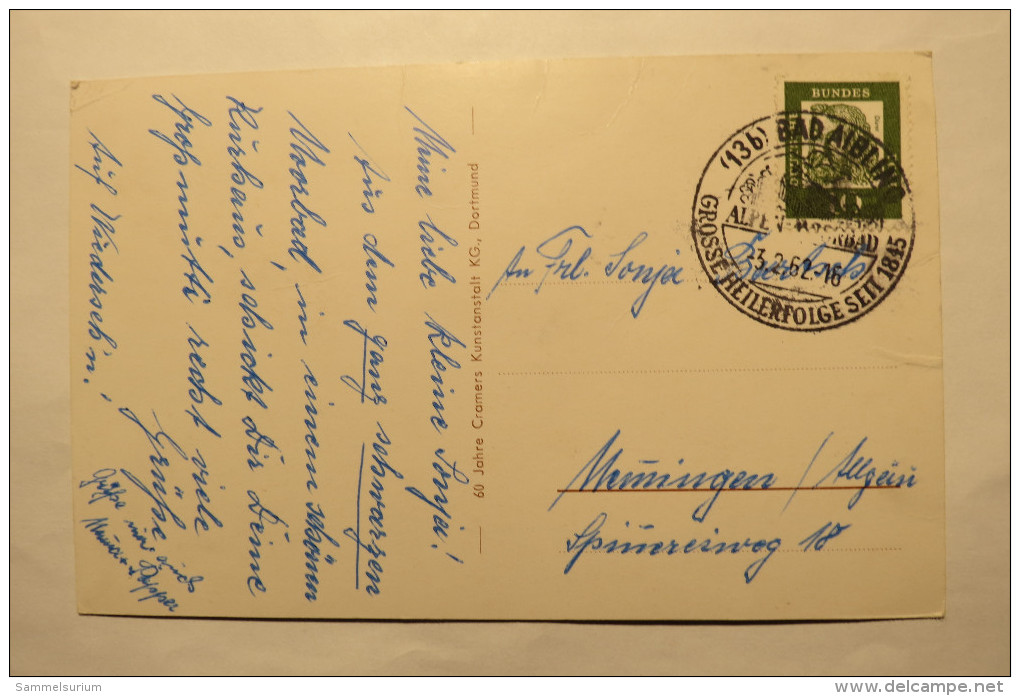 Meine liebe kleine Sonja!
Aus dem ganz schwarzen
Moorbad, in einem schönen
Kurhaus, schickt Dir Deine
Großmutti recht viele
Grüße
Auf Wiederseh'n!
Grüße
60 Jahre Cramers Kunstanstalt KG., Dortmund
BUNDES
(13b) BAD AIBLING
GROSSE HEILERFOLGE SEIT 1845
An Frl. Sonja
Memmingen / Allgäu
Spinnereiweg 18
Sammelsurium
www.delcampe.net